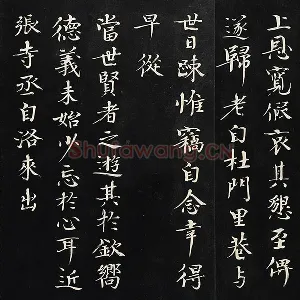 上恩寬假哀其懇至俾
遂歸老白杜門里巷与
世日踈惟竊自念幸得
早從
當世賢者之遊其於欽嚮
德義未始少忘於心耳近
張寺丞自洛來出
shufawang.CN